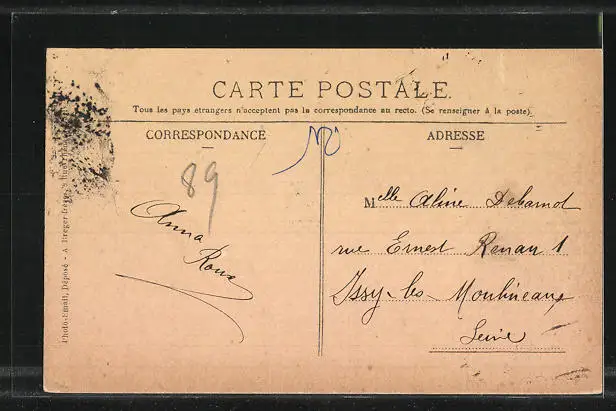 CARTE POSTALE.
Tous les pays étrangers n'acceptent pas la correspondance au recto. (Se renseigner à la poste).
CORRESPONDANCE
89
Anna
Roux
ADRESSE
Melle Aline Debarnot
rue Ernest Renan 1
Issy-les-Moulineaux
Seine
Photo-Émail, Déposé - A. Breger frères,